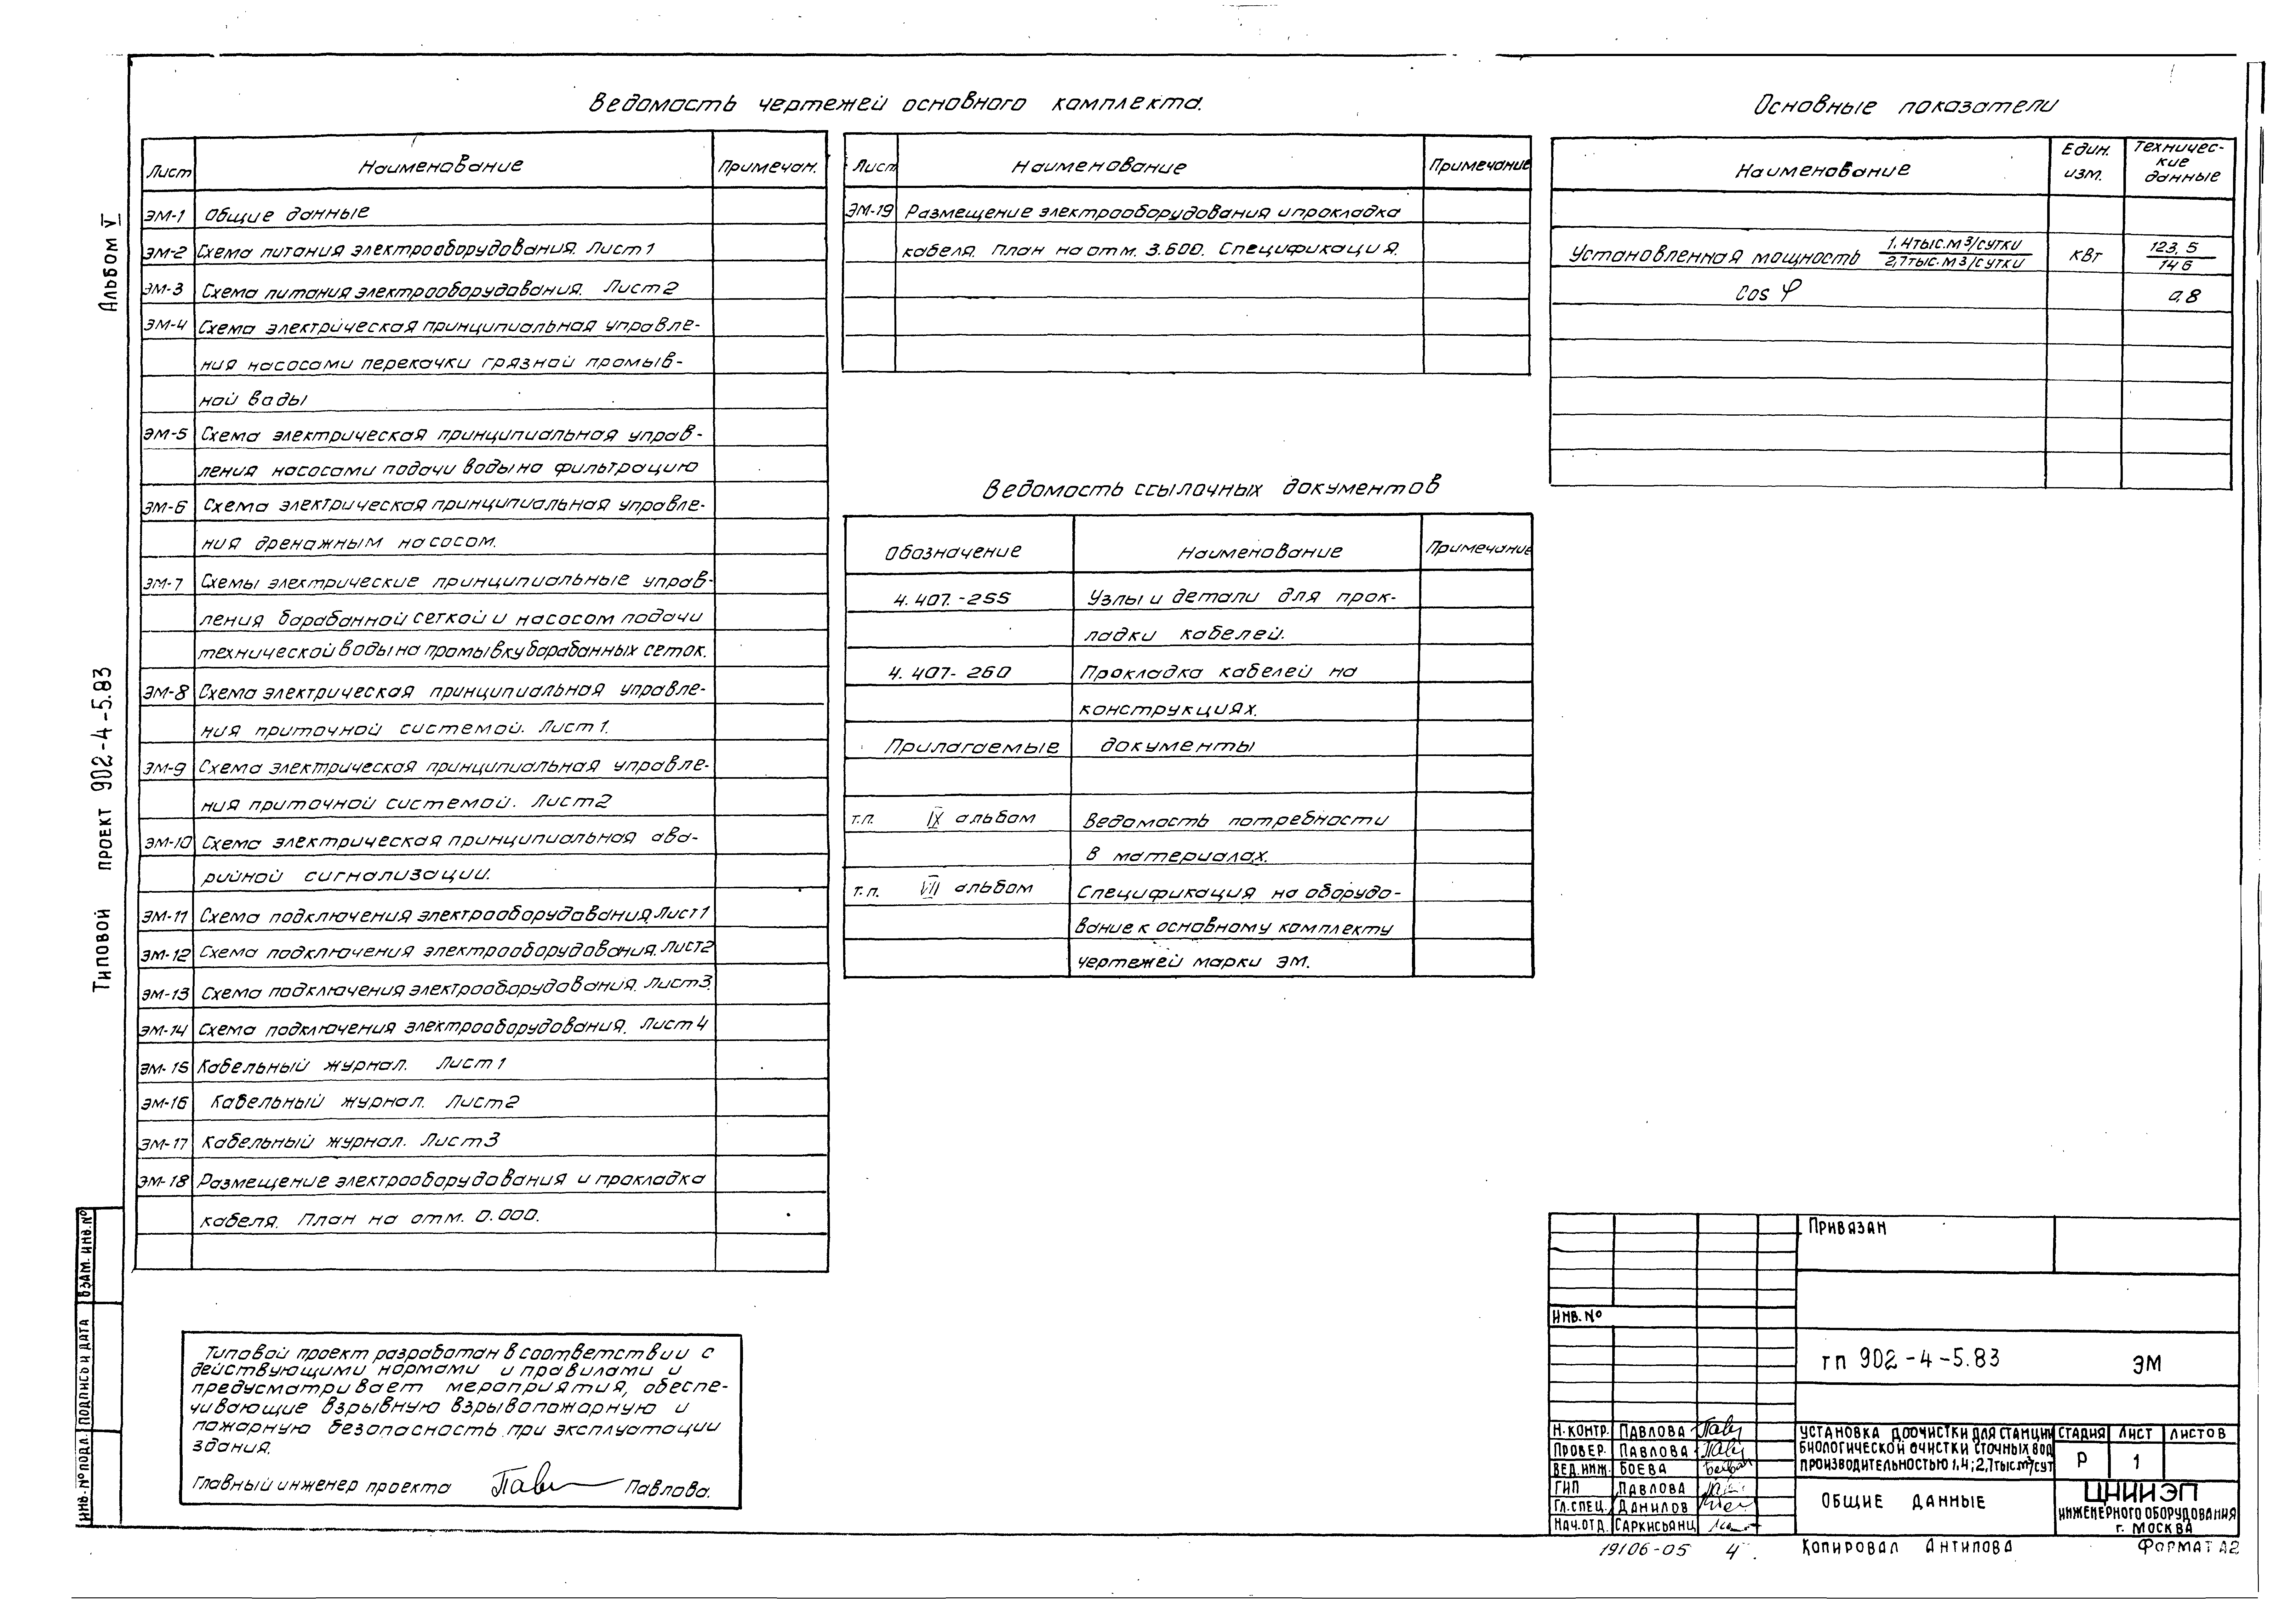 Ведомость чертежей основного комплекта.
Лист Наименование Примечан.
ЭМ-1 Общие данные
ЭМ-2 Схема питания электрооборудования. Лист 1
ЭМ-3 Схема питания электрооборудования. Лист 2
ЭМ-4 Схема электрическая принципиальная управле-
ния насосами перекачки грязной промыв-
ной воды
ЭМ-5 Схема электрическая принципиальная управ-
ления насосами подачи воды на фильтрацию
ЭМ-6 Схема электрическая принципиальная управле-
ния дренажным насосом.
ЭМ-7 Схемы электрические принципиальные управ-
ления барабанной сеткой и насосом подачи
технической воды на промывку барабанных сеток.
ЭМ-8 Схема электрическая принципиальная управле-
ния приточной системой. Лист 1.
ЭМ-9 Схема электрическая принципиальная управле-
ния приточной системой. Лист 2
ЭМ-10 Схема электрическая принципиальная ава-
рийной сигнализации.
ЭМ-11 Схема подключения электрооборудования. Лист 1
ЭМ-12 Схема подключения электрооборудования. Лист 2
ЭМ-13 Схема подключения электрооборудования. Лист 3.
ЭМ-14 Схема подключения электрооборудования. Лист 4
ЭМ-15 Кабельный журнал. Лист 1
ЭМ-16 Кабельный журнал. Лист 2
ЭМ-17 Кабельный журнал. Лист 3
ЭМ-18 Размещение электрооборудования и прокладка
кабеля. План на отм. 0.000.
Лист Наименование Примечание
ЭМ-19 Размещение электрооборудования и прокладка
кабеля. План на отм. 3.600. Спецификация.
Ведомость ссылочных документов
Обозначение Наименование Примечание
4.407.-255 Узлы и детали для прок-
ладки кабелей.
4.407-260 Прокладка кабелей на
конструкциях.
Прилагаемые документы
т.п. IX альбом Ведомость потребности
в материалах.
т.п. VII альбом Спецификация на оборудо-
вание к основному комплекту
чертежей марки ЭМ.
Основные показатели
Наименование Един. изм. Техничес-
кие
данные
Установленная мощность 1,4 тыс.м3/сутки квт 123,5
2,7 тыс.м3/сутки 146
cos φ 0,8
Альбом V
Типовой проект 902-4-5.83
Взам. инв. №
Подпись и дата
Инв. № подл.
Типовой проект разработан в соответствии с
действующими нормами и правилами и
предусматривает мероприятия, обеспе-
чивающие взрывную взрывопожарную и
пожарную безопасность при эксплуатации
здания.
Главный инженер проекта Павлова.
Привязан
Инв. №
тп 902-4-5.83 ЭМ
Н.контр. Павлова
Провер. Павлова
Вед.инж. Боева
ГИП Павлова
Гл.спец. Данилов
Нач.отд. Саркисьянц
Установка доочистки для станции
биологической очистки сточных вод
производительностью 1,4; 2,7 тыс м3/сут
Стадия Лист Листов
Р 1
Общие данные
ЦНИИЭП
инженерного оборудования
г. Москва
19106-05 4
Копировал Антипова
Формат А2